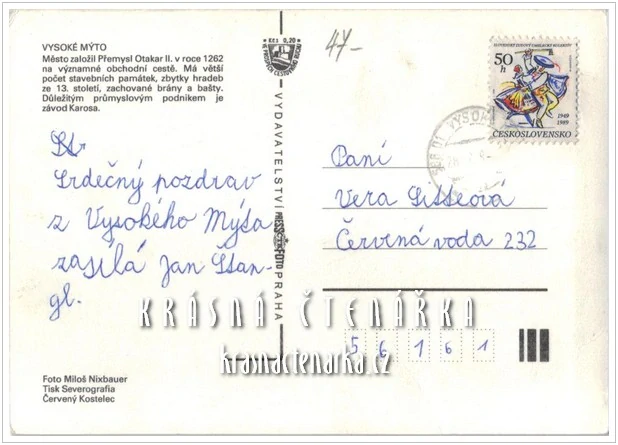 VYSOKÉ MÝTO
Město založil Přemysl Otakar II. v roce 1262
na významné obchodní cestě. Má větší
počet stavebních památek, zbytky hradeb
ze 13. století, zachované brány a bašty.
Důležitým průmyslovým podnikem je
závod Karosa.
Sr
Srdečný pozdrav
z Vysokého Mýta
zasílá Jan Stan-
gl.
Foto Miloš Nixbauer
Tisk Severografia
Červený Kostelec
Kčs 0,20
VYDAVATELSTVÍ PRESSFOTO PRAHA
47-
50 h
1949
1989
ČESKOSLOVENSKO
Paní
Vera Sitteová
Červená voda 232
56161
KRÁSNÁ ČTENÁŘKA
krasnactenarka.cz